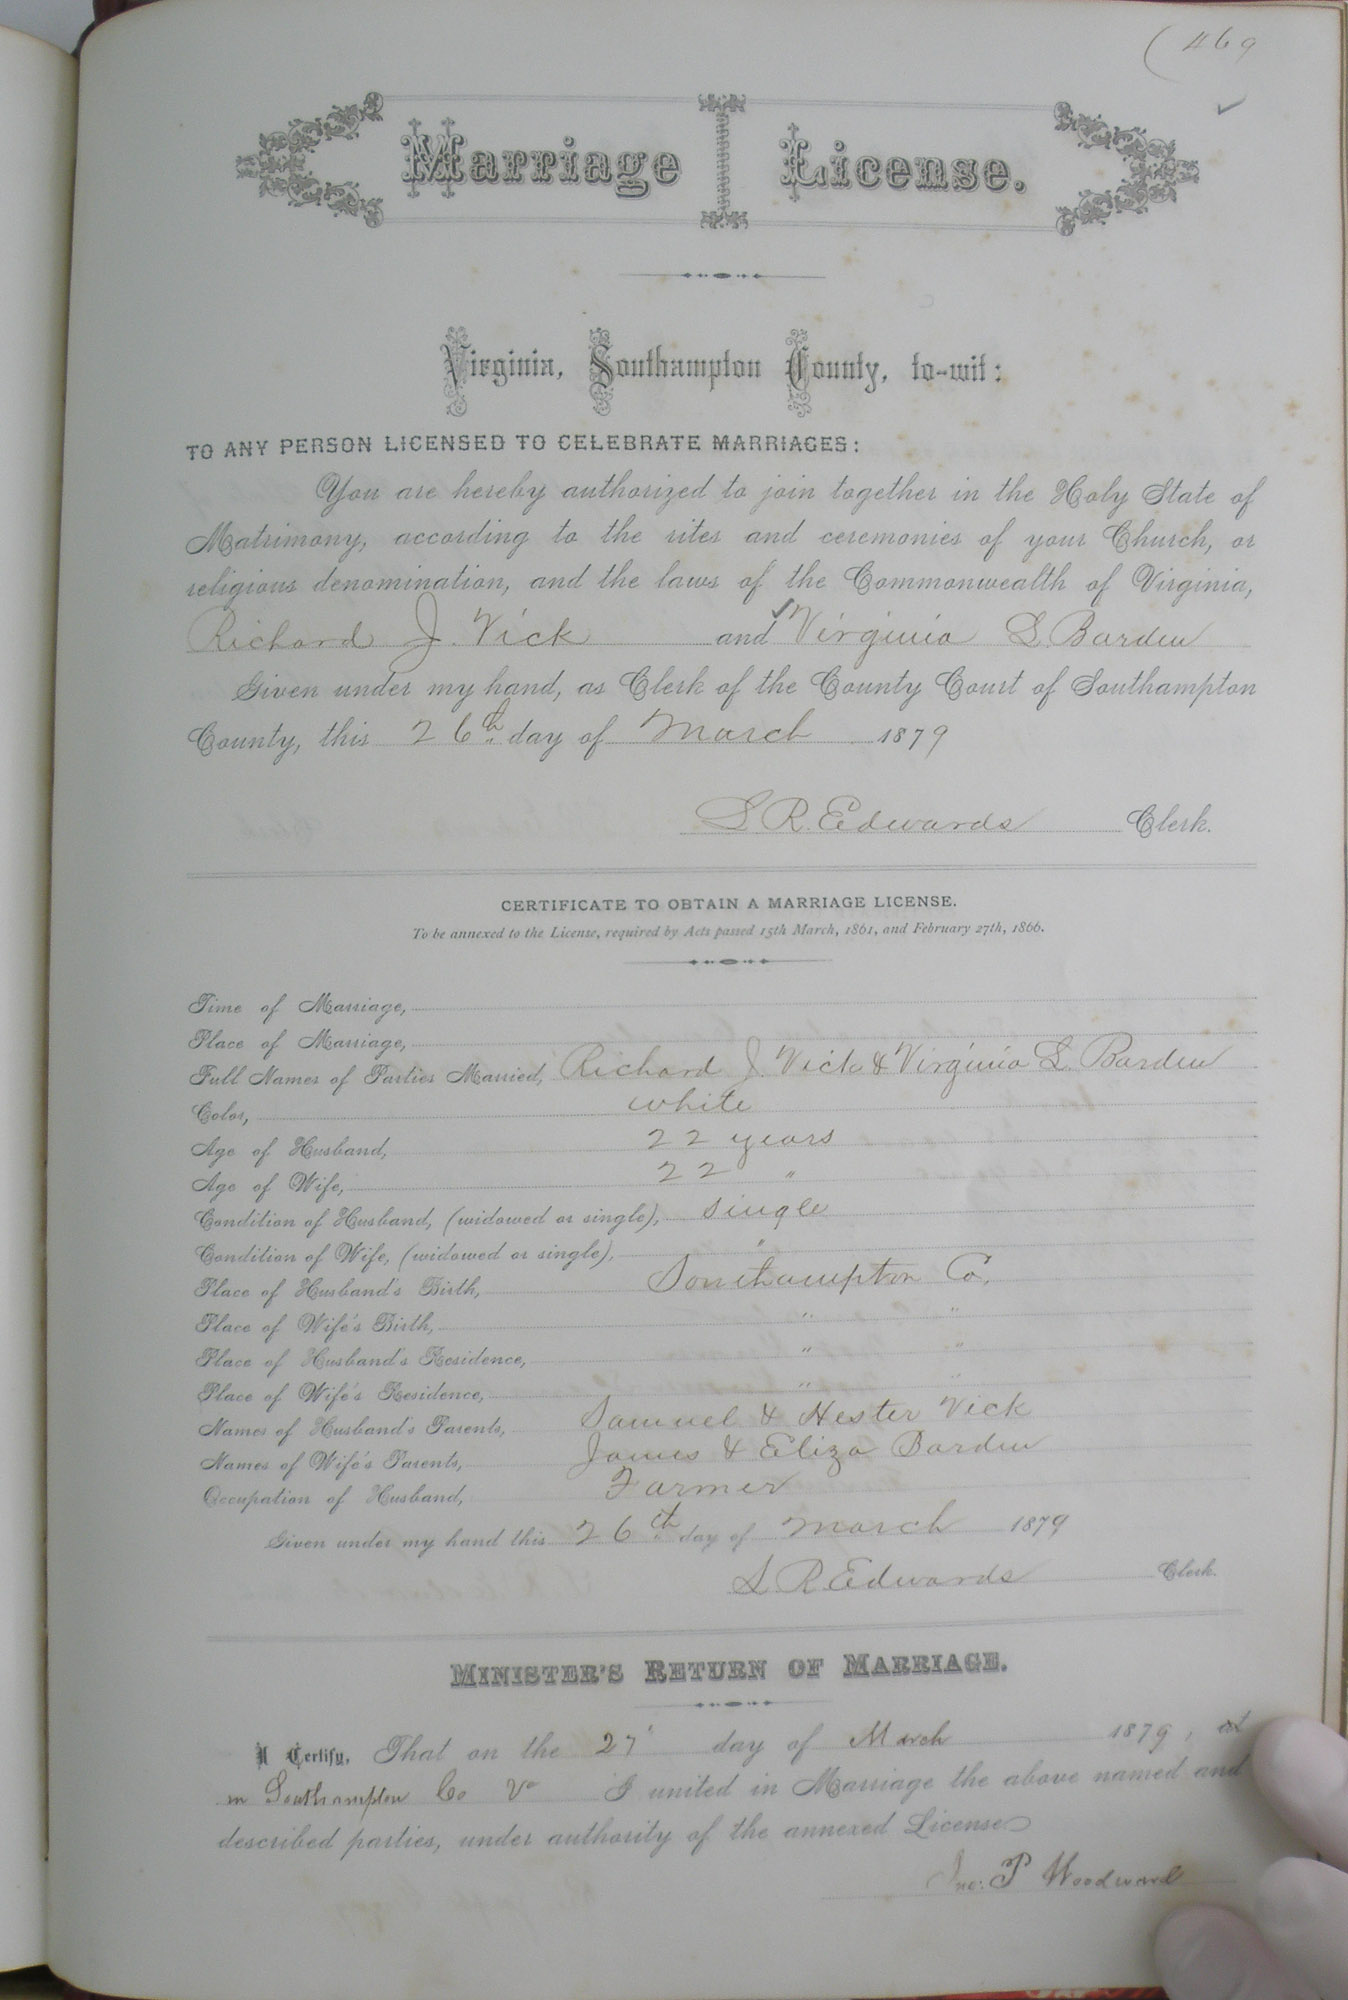 469
Marriage License.
Virginia, Southampton County, to-wit:
TO ANY PERSON LICENSED TO CELEBRATE MARRIAGES:
You are hereby authorized to join together in the Holy State of
Matrimony, according to the rites and ceremonies of your Church, or
religious denomination, and the laws of the Commonwealth of Virginia,
Richard J. Vick and Virginia S. Barden
Given under my hand, as Clerk of the County Court of Southampton
County, this 26th day of March 1879
L R. Edwards Clerk.
CERTIFICATE TO OBTAIN A MARRIAGE LICENSE.
To be annexed to the License, required by Acts passed 15th March, 1861, and February 27th, 1866.
Time of Marriage,
Place of Marriage,
Full Names of Parties Married, Richard J. Vick & Virginia S. Barden
Color, white
Age of Husband, 22 years
Age of Wife, 22 "
Condition of Husband, (widowed or single), single
Condition of Wife, (widowed or single), "
Place of Husband's Birth, Southampton Co.
Place of Wife's Birth, " "
Place of Husband's Residence, " "
Place of Wife's Residence, " "
Names of Husband's Parents, Samuel & Hester Vick
Names of Wife's Parents, James & Eliza Barden
Occupation of Husband, Farmer
Given under my hand this 26th day of March 1879
L R. Edwards Clerk.
MINISTER'S RETURN OF MARRIAGE.
I Certify, That on the 27 day of March 1879, at
in Southampton Co Va I united in Marriage the above named and
described parties, under authority of the annexed License
Jno: P Woodward